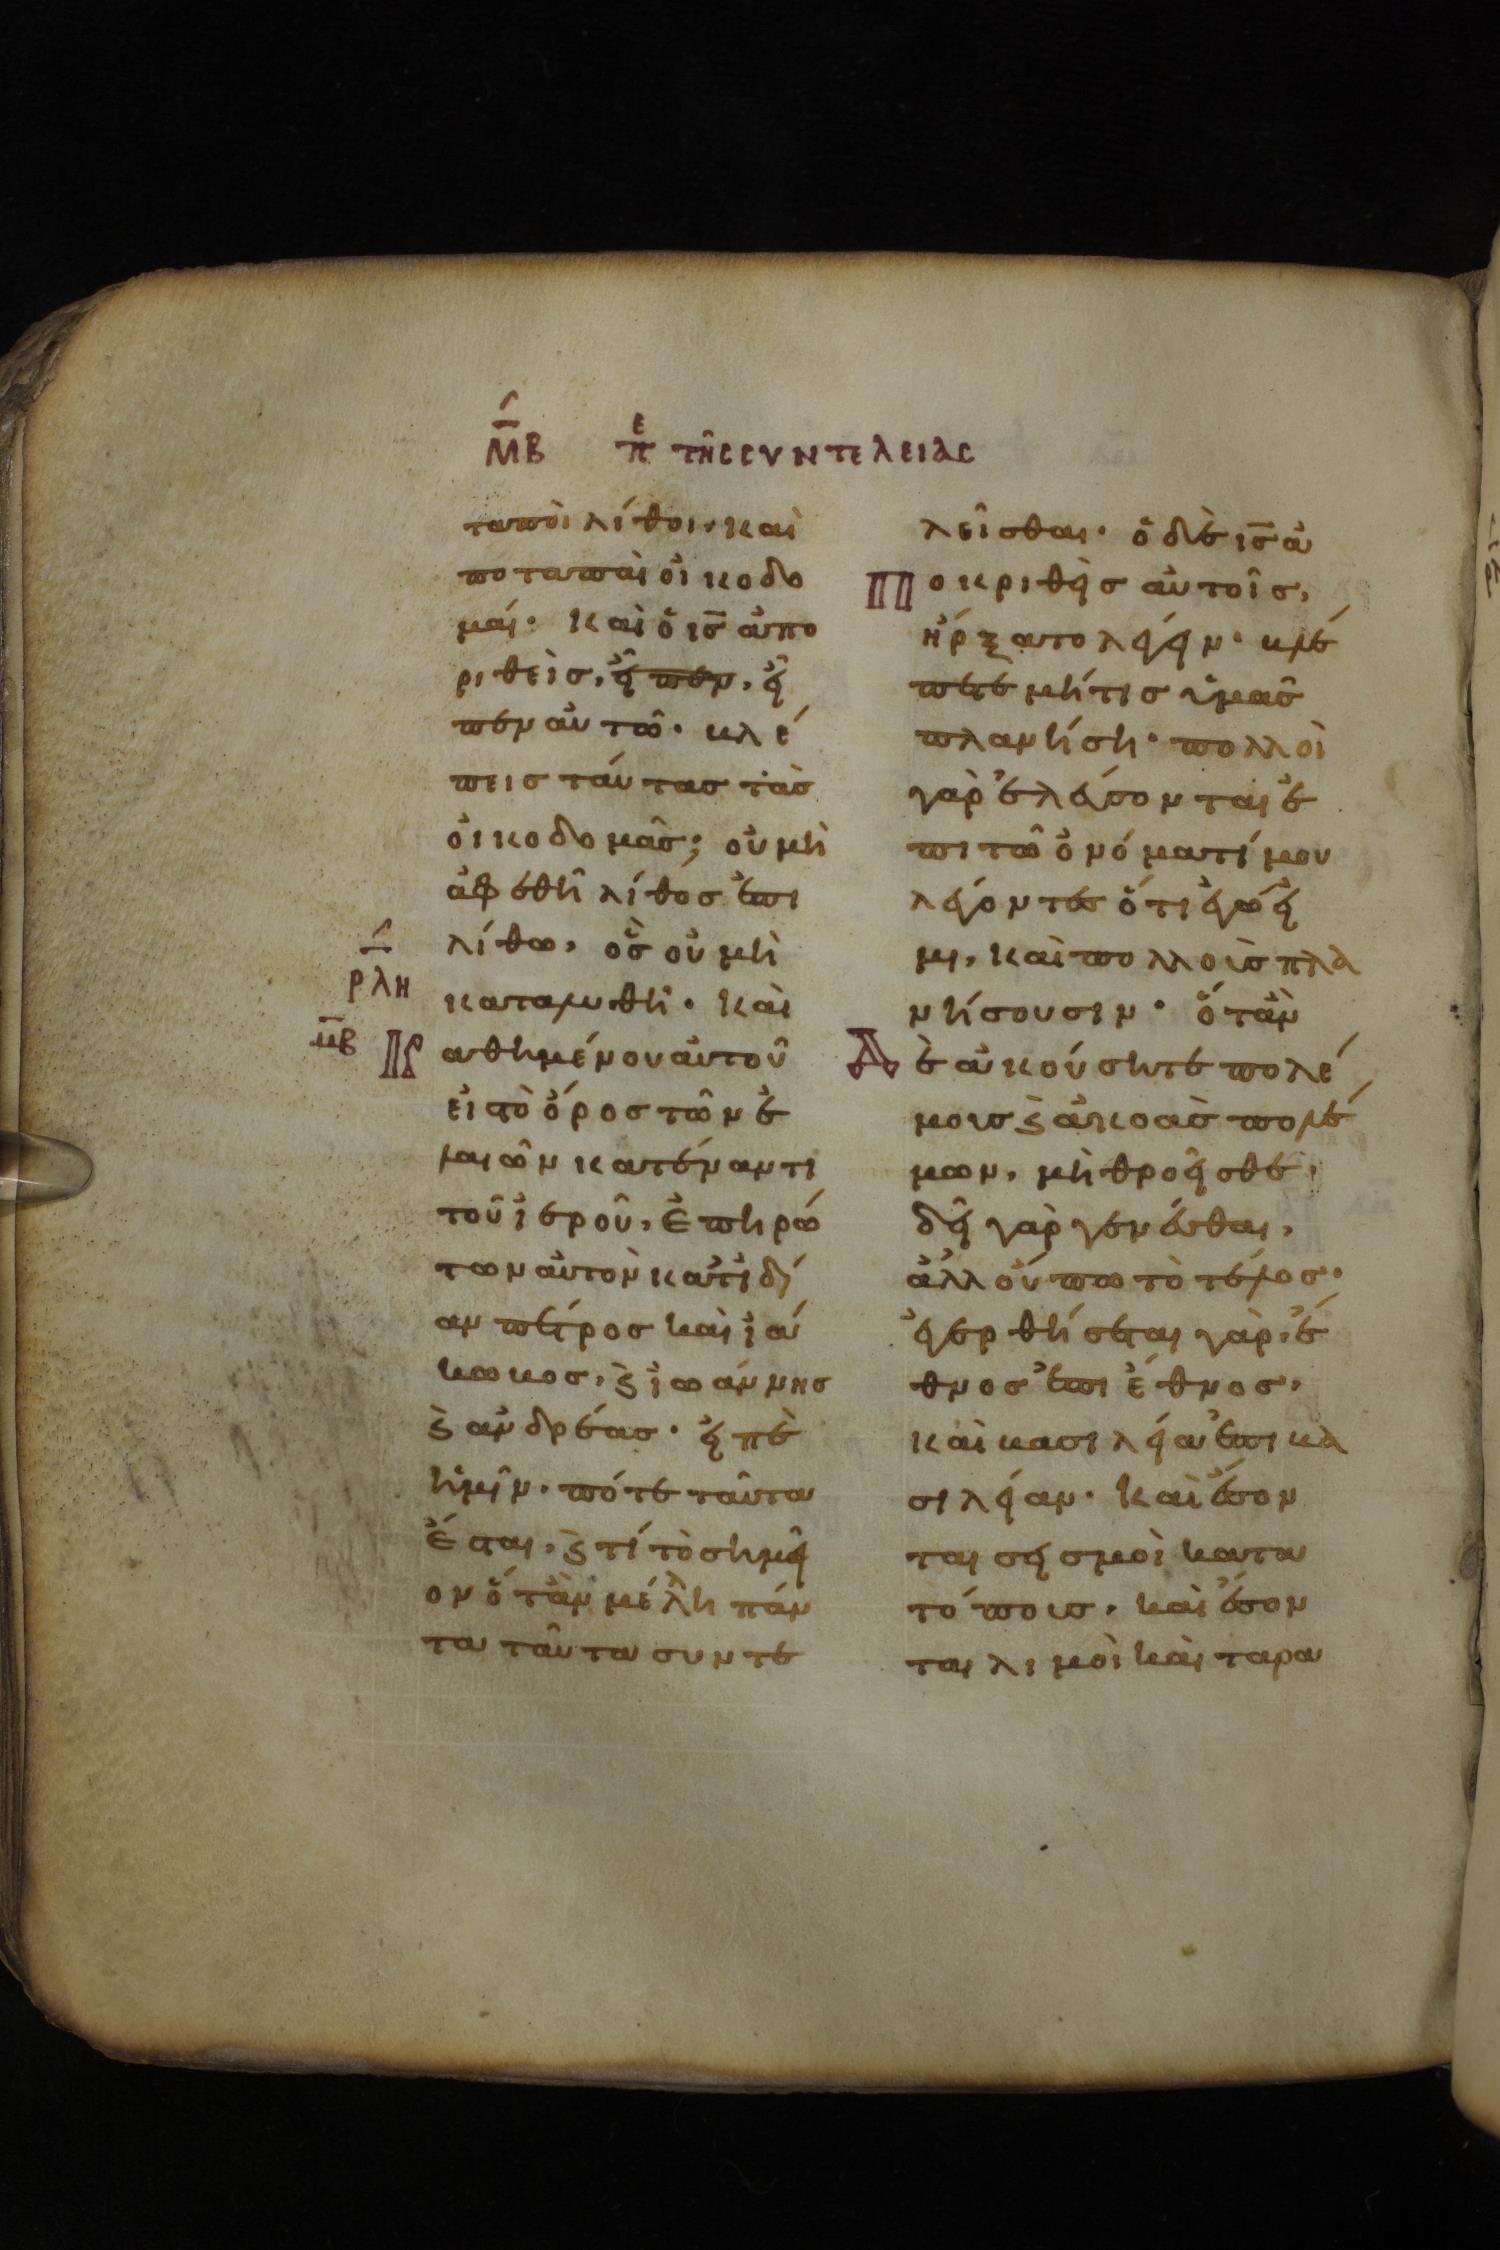 ΜΒ πε τῆς συντελείας
ταποὶ λίθοι, καὶ
ποταπαὶ οἰκοδο
μαί· καὶ ὁ ις απο
ριθεὶσ, εἶπεν, εἶ
πεν αὐτῶ· βλέ
πεισ ταύτασ τὰσ
οἰκοδομᾶσ; οὐ μὴ
ἀφεθῆ λίθοσ ἐπι
λίθω, ὃσ οὐ μὴ
ρλη
καταλυθῆ· Καὶ
μβ
Κ αθημένου αὐτοῦ
εἰσ τὸ ὄροσ τῶν ἐ
λαιῶν κατέναντι
τοῦ ἱεροῦ, ἐπηρώ
των αὐτὸν κατ ἰδί
αν πέτροσ καὶ ἰά
κωβοσ, ϗ ἰωάννησ
ϗ ανδρέασ· εἰπὲ
ἡμῖν· πότε ταῦτα
ἔσται, ϗ τί τὸ σημεῖ
ον ὅταν μέλλη πάν
τα ταῦτα συντε
λεῖσθαι· ὁ δὲ ις ἀ
Π οκριθεὶσ αὐτοῖσ,
ἤρξατο λέγειν· βλέ
πετε μήτισ ὑμᾶσ
πλανήση· πολλοὶ
γὰρ ἐλεύσονται ἐ
πι τῶ ὀνόματί μου
λέγοντεσ ὅτι ἐγώ εἰ
μι, καὶ πολλοὺσ πλα
νήσουσιν· ὅταν
Δ ἐ ἀκούσητε πολέ
μουσ ϗ ἀκοὰσ πολέ
μων, μὴ θροεῖσθε·
δεῖ γὰρ γενέσθαι,
ἀλλ οὔπω τὸ τέλοσ·
ἐγερθήσεται γὰρ ἔ
θνοσ ἐπι ἔθνοσ,
καὶ βασιλεία ἐπι βα
σιλείαν· καὶ ἔσον
ται σεισμοὶ κατα
τόπουσ, καὶ ἔσον
ται λιμοὶ καὶ ταρα